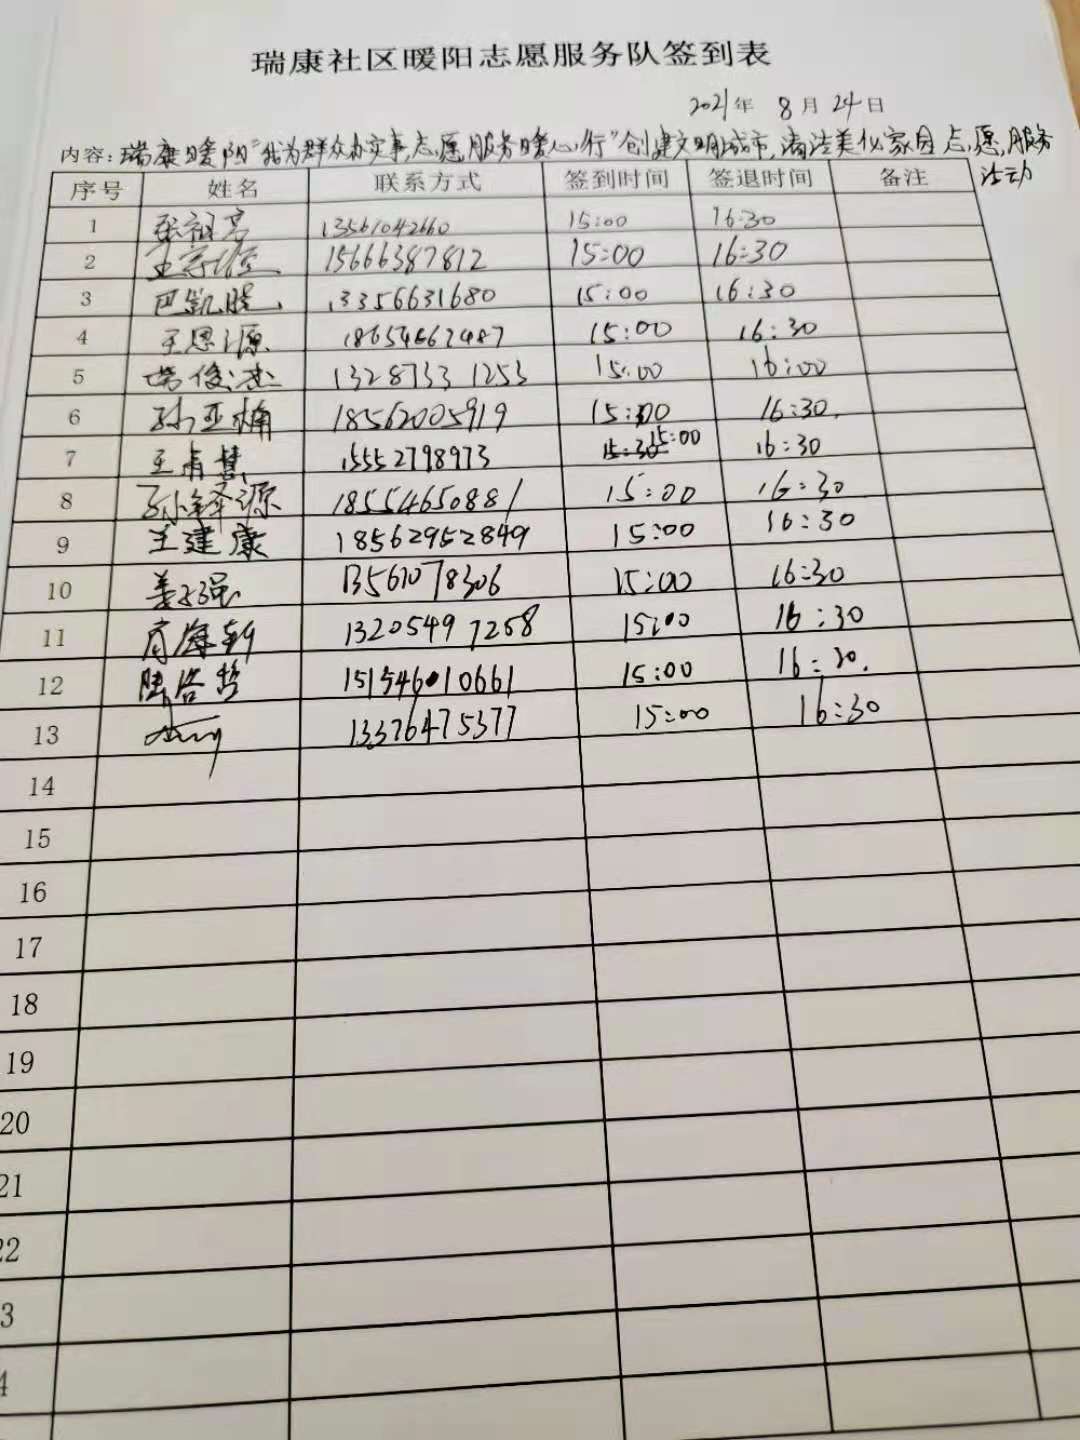 瑞康社区暖阳志愿服务队签到表
2021年 8月 24日
内容：瑞康暖阳"我为群众办实事，志愿服务暖心行"创建文明城市，清洁美化家园志愿服务
活动
序号 姓名 联系方式 签到时间 签退时间 备注
1 张祖亮 13561042660 15:00 16:30
2 15666387812 15:00 16:30
3 巴凯 13356631680 15:00 16:30
4 王恩源 18654662487 15:00 16:30
5 俊杰 13287331253 15:00 16:00
6 孙亚楠 18562005919 15:00 16:30
7 王青慧 15552798973 15:30 15:00 16:30
8 孙泽源 18554650881 15:00 16:30
9 王建康 18562952849 15:00 16:30
10 姜强 13561078306 15:00 16:30
11 13205497258 15:00 16:30
12 151546010661 15:00 16:30
13 13376475377 15:00 16:30
14
15
16
17
18
19
20
21
22
3
4